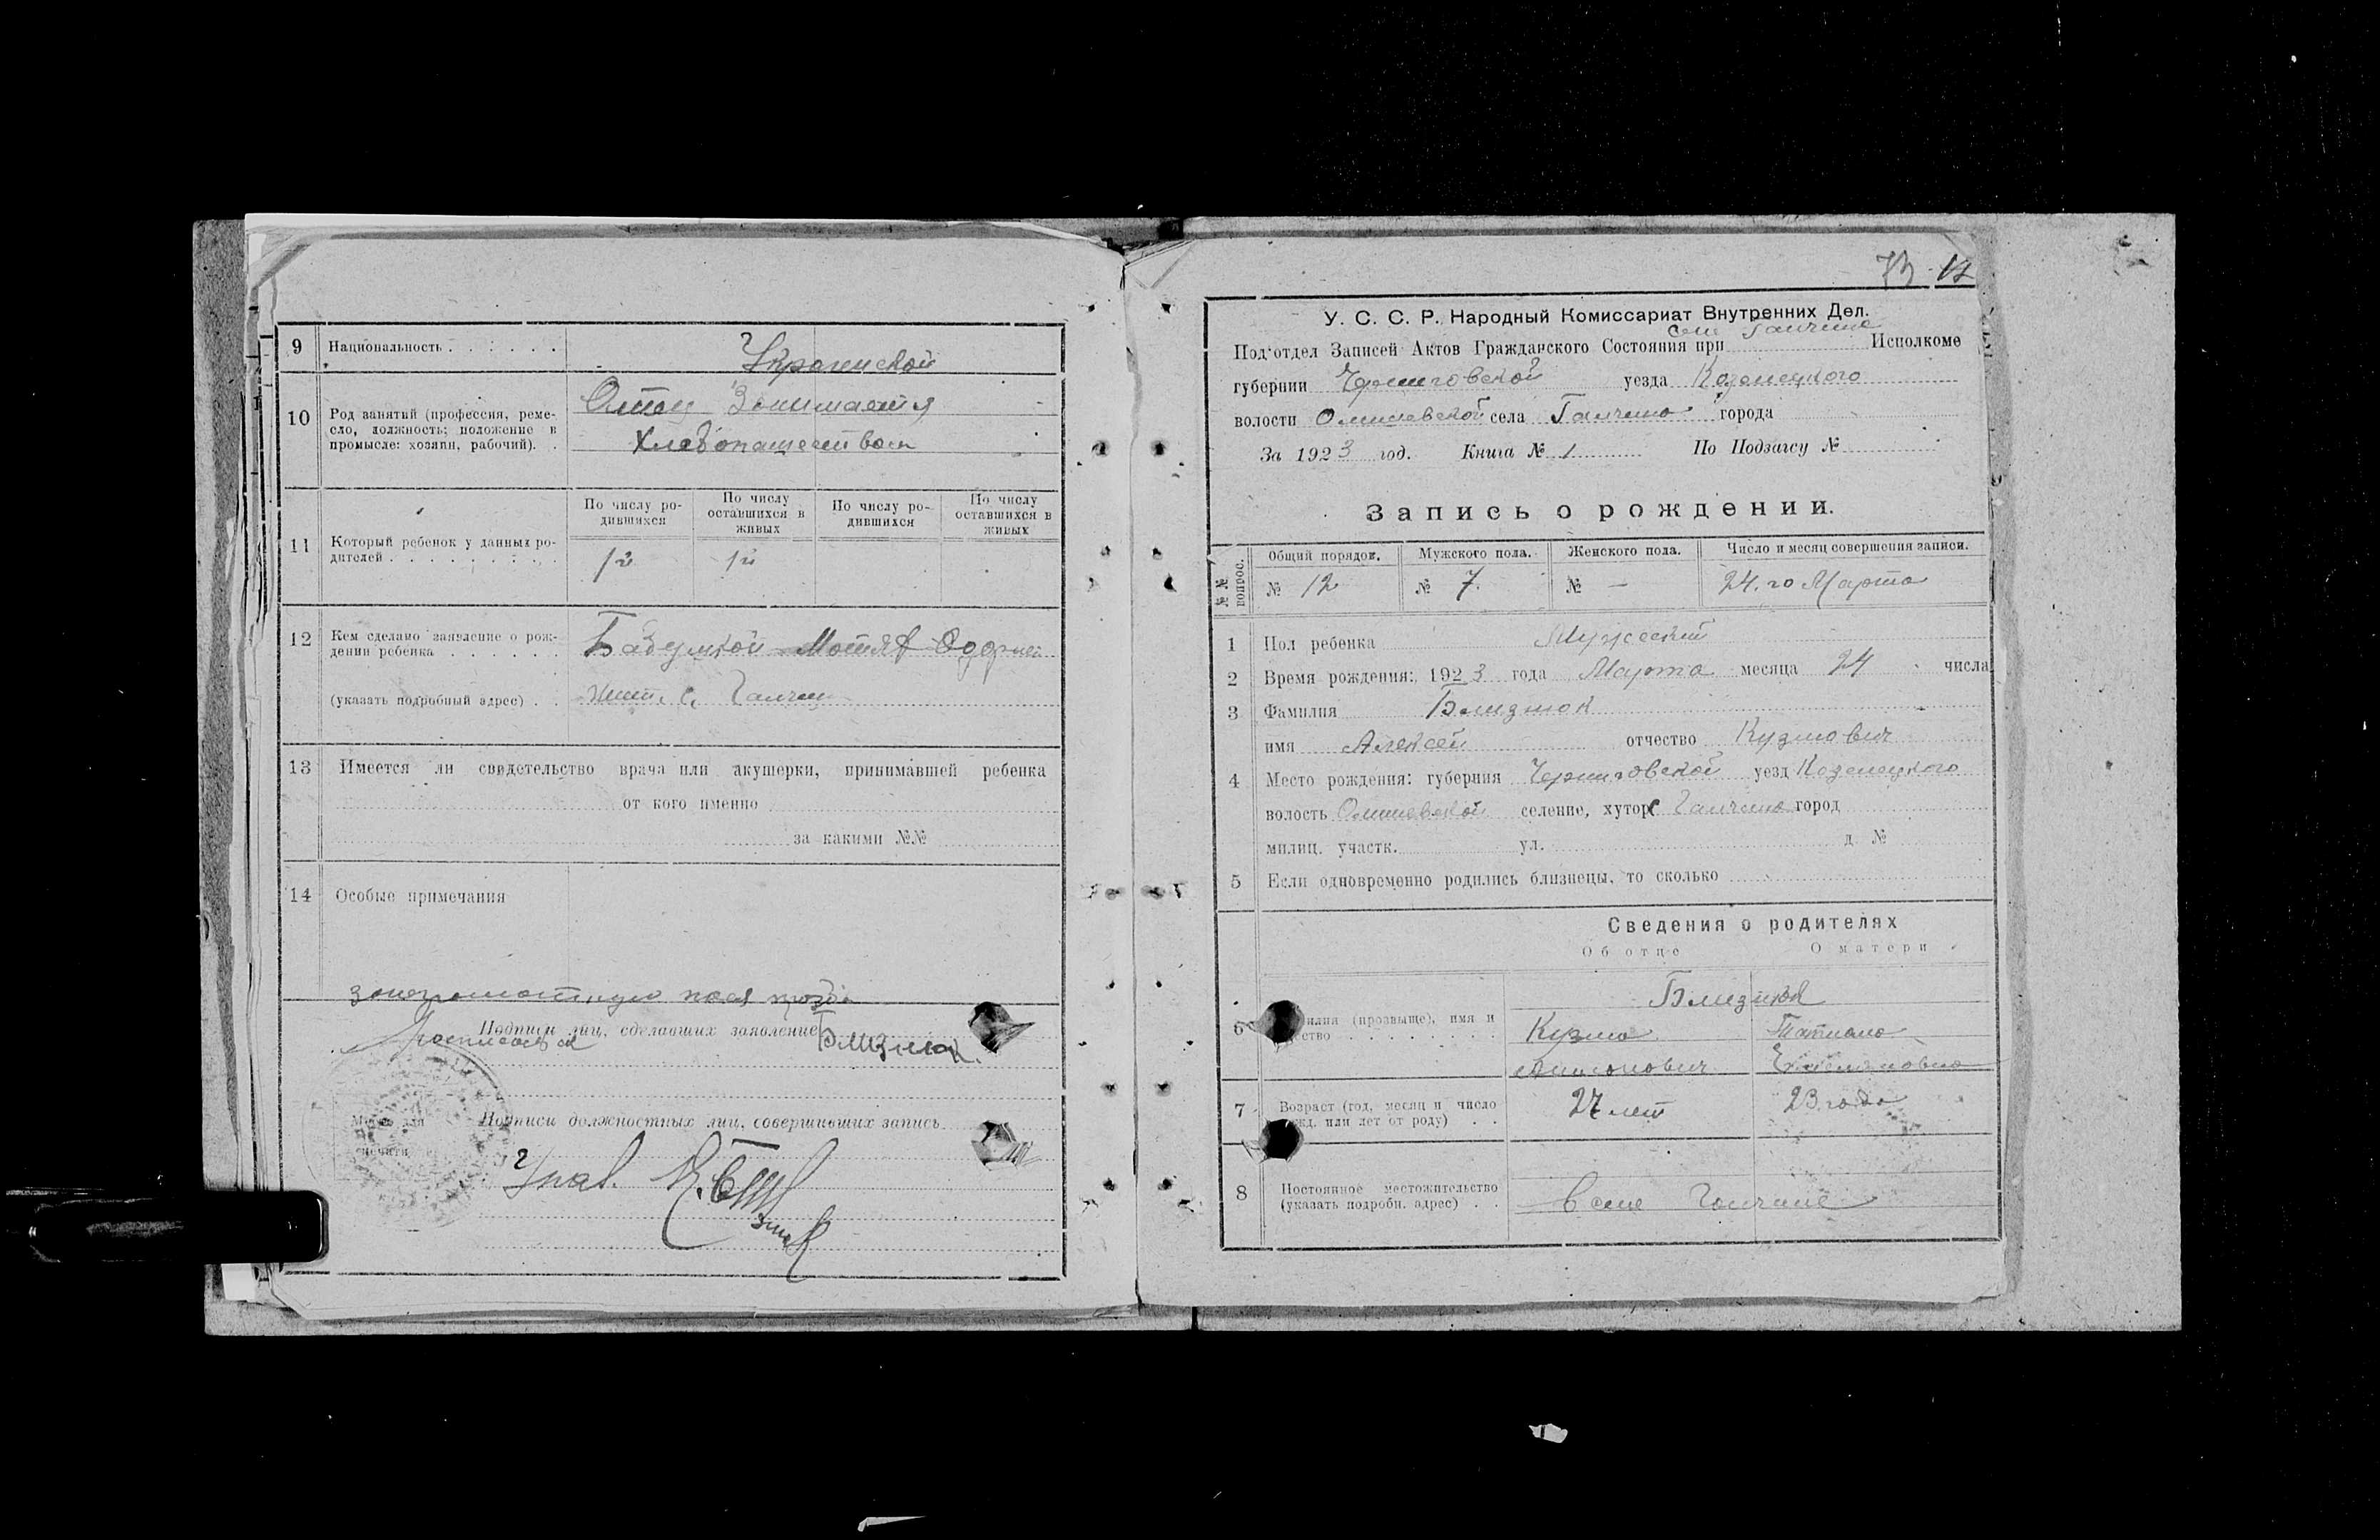 9 Национальность . . . . . . Украинской
10 Род занятий (профессия, реме-
сло, должность; положение в
промысле: хозяин, рабочий). .
Отец Занимается
Хлебопашеством
11 Который ребенок у данных ро-
дителей . . . . . . . . .
По числу ро-
дившихся
По числу
оставшихся в
живых
По числу ро-
дившихся
По числу
оставшихся в
живых
12 Кем сделано заявление о рож-
дении ребенка . . . . . .
(указать подробный адрес) . .
жит. с.
13 Имеется ли свидетельство врача или акушерки, принимавшей ребенка
от кого именно
за какими №№
14 Особые примечания
Подписи лиц, сделавших заявление
Близнюк
Место для
печати
Подписи должностных лиц, совершивших запись
73 12
У. С. С. Р. Народный Комиссариат Внутренних Дел.
Под'отдел Записей Актов Гражданского Состояния при Исполкоме
губернии Черниговской уезда Козелецкого
волости Олишевской села Галчина города
За 1923 год. Книга № 1 По Подзагсу №
Запись о рождении.
№№ вопрос.
Общий порядок. Мужского пола. Женского пола. Число и месяц совершения записи.
№ 12 № 7 № — 24.го Марта
1 Пол ребенка Мужеский
2 Время рождения: 1923 года Марта месяца 24 числа
3 Фамилия Близнюк
имя Алексей отчество Кузмович
4 Место рождения: губерния Черниговской уезд Козелецкого
волость Олишевской селение, хутор Галчина город
милиц. участк. ул. д. №
5 Если одновременно родились близнецы, то сколько
Сведения о родителях
Об отце О матери
6 илия (прозвище), имя и
ство . . . . . . . . .
Кузма Татиана
Емельяновна
7 Возраст (год, месяц и число
жд. или лет от роду) . .
27 лет 23 года
8 Постоянное местожительство
(указать подробн. адрес) . .
в селе Галчине